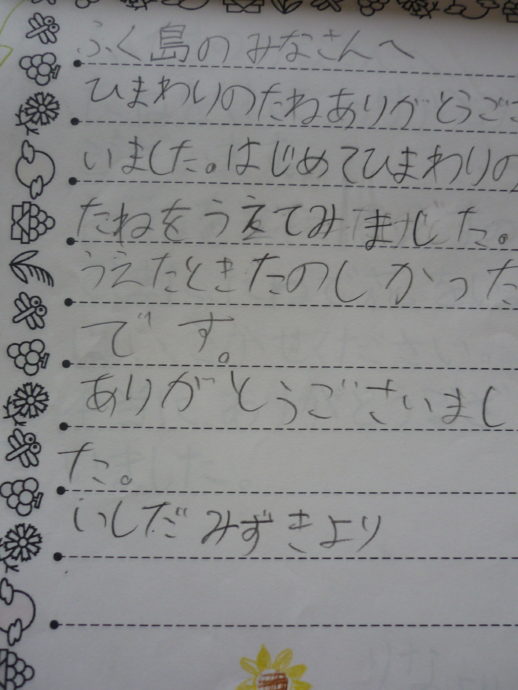 ふく島のみなさんへ
ひまわりのたねありがとうご
いました。はじめてひまわりの
たねをうえてみました。
うえたときたのしかった
です。
ありがとうございまし
た。
いしだみずきより